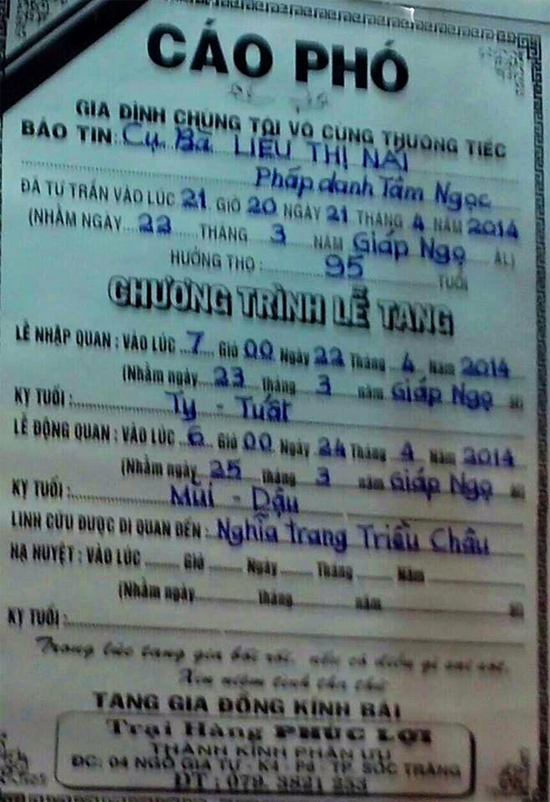 CÁO PHÓ
GIA ĐÌNH CHÚNG TÔI VÔ CÙNG THƯƠNG TIẾC
BÁO TIN: Cụ Bà LIÊU THỊ NÁI
Pháp danh Tâm Ngọc
ĐÃ TỪ TRẦN VÀO LÚC 21 GIỜ 20 NGÀY 21 THÁNG 4 NĂM 2014
(NHẰM NGÀY 22 THÁNG 3 NĂM Giáp Ngọ ÂL)
HƯỞNG THỌ: 95 TUỔI
CHƯƠNG TRÌNH LỄ TANG
LỄ NHẬP QUAN: VÀO LÚC 7 Giờ 00 Ngày 22 Tháng 4 Năm 2014
(Nhằm ngày 23 tháng 3 năm Giáp Ngọ âl)
KỴ TUỔI: Tý - Tuất
LỄ ĐỘNG QUAN: VÀO LÚC 6 Giờ 00 Ngày 24 Tháng 4 Năm 2014
(Nhằm ngày 25 tháng 3 năm Giáp Ngọ âl)
KỴ TUỔI: Mùi - Dậu
LINH CỬU ĐƯỢC DI QUAN ĐẾN: Nghĩa trang Triều Châu
HẠ HUYỆT: VÀO LÚC Giờ Ngày Tháng Năm
(Nhằm ngày tháng năm âl)
KỴ TUỔI:
Trong lúc tang gia bối rối, nếu có điều gì sai sót,
Xin niệm tình tha thứ
TANG GIA ĐỒNG KÍNH BÁI
Trại Hàng PHƯỚC LỢI
THÀNH KÍNH PHÂN ƯU
ĐC: 04 NGÔ GIA TỰ - K4 - P6 - TP. SÓC TRĂNG
ĐT: 079. 3821 253